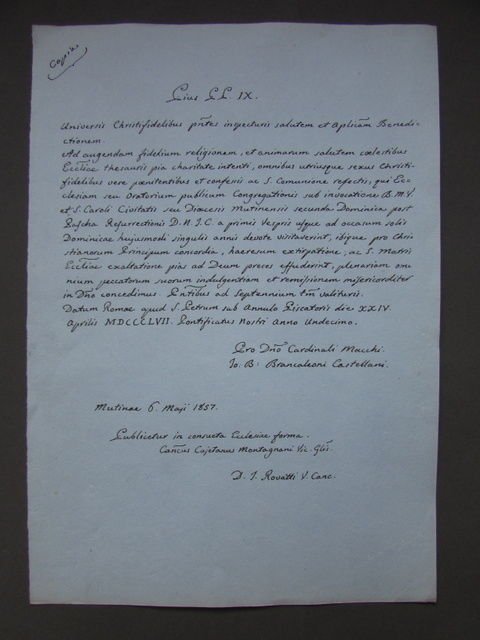 Copia
Pius PP. IX.
Universis Christifidelibus pñtes inspecturis salutem et Aplicam Benedi-
ctionem.
Ad augendam fidelium religionem, et animarum salutem coelestibus
Eccliae thesauris pia charitate intenti, omnibus utriusque sexus Christi-
fidelibus vere poenitentibus et confessis ac S. Comunione refectis, qui Ec-
clesiam seu Oratorium publicum Congregationis sub invocatione B.M.V.
et S. Caroli Civitatis seu Dioecesis Mutinensis secunda Dominica post
Pascha Resurrectionis D.N.J.C. a primis Vespris usque ad occasum solis
Dominicae hujusmodi singulis annis devote visitaverint, ibique pro Chri-
stianorum Principum concordia, haeresum extirpatione, ac S. Matris
Eccliae exaltatione pias ad Deum preces effuderint, plenariam om-
nium peccatorum suorum indulgentiam et remissionem misericorditer
in Dño concedimus. Pñtibus ad Septennium tm̃ valituris.
Datum Romae apud S. Petrum sub Annulo Piscatoris die XXIV.
Aprilis MDCCCLVII. Pontificatus Nostri Anno Undecimo.
Pro Dño Cardinali Macchi
Io. B: Brancaleoni Castellani.
Mutinae 6. Maji 1857.
Publicetur in consueta Ecclesiae forma.
Canĉus Cajetanus Montagnani Vic. Glis.
D. J. Rovatti V. Canc.